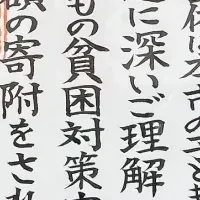 は本市の子ど
に深いご理解
もの貧困対策
額の寄附をされ